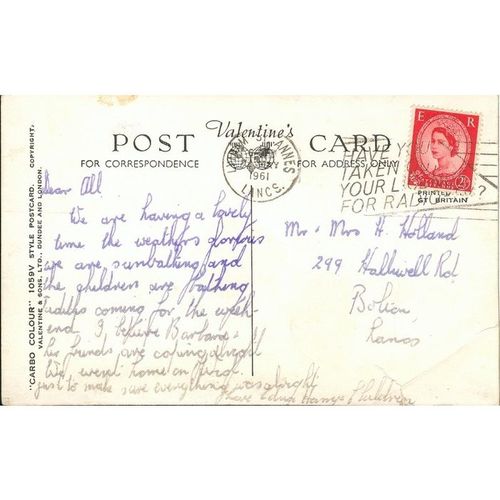 "CARBO COLOUR" 1059V STYLE POSTCARD.
VALENTINE & SONS, LTD., DUNDEE AND LONDON. COPYRIGHT.
POST Valentine's CARD
FOR CORRESPONDENCE FOR ADDRESS ONLY
LYTHAM ST ANNES
1961
LANCS.
HAVE YOU
TAKEN
YOUR
FOR
?
E R
2½
PRINTED
GT. BRITAIN
Dear All
We are having a lovely
time the weathers glorious
we are sunbathing and
the children are bathing
coming for the week-
end I believe Barbara &
her friends are coping alright
We went home on
just to make sure everything was alright
Love Edna Harry & Children
Mr & Mrs H. Holland
299 Halliwell Rd
Bolton
Lancs